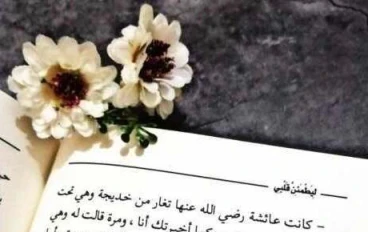 ليطمئن قلبي
- كانت عائشة رضي الله عنها تغار من خديجة وهي تحت
أخبرتك أنا ، ومرة قالت له وهي